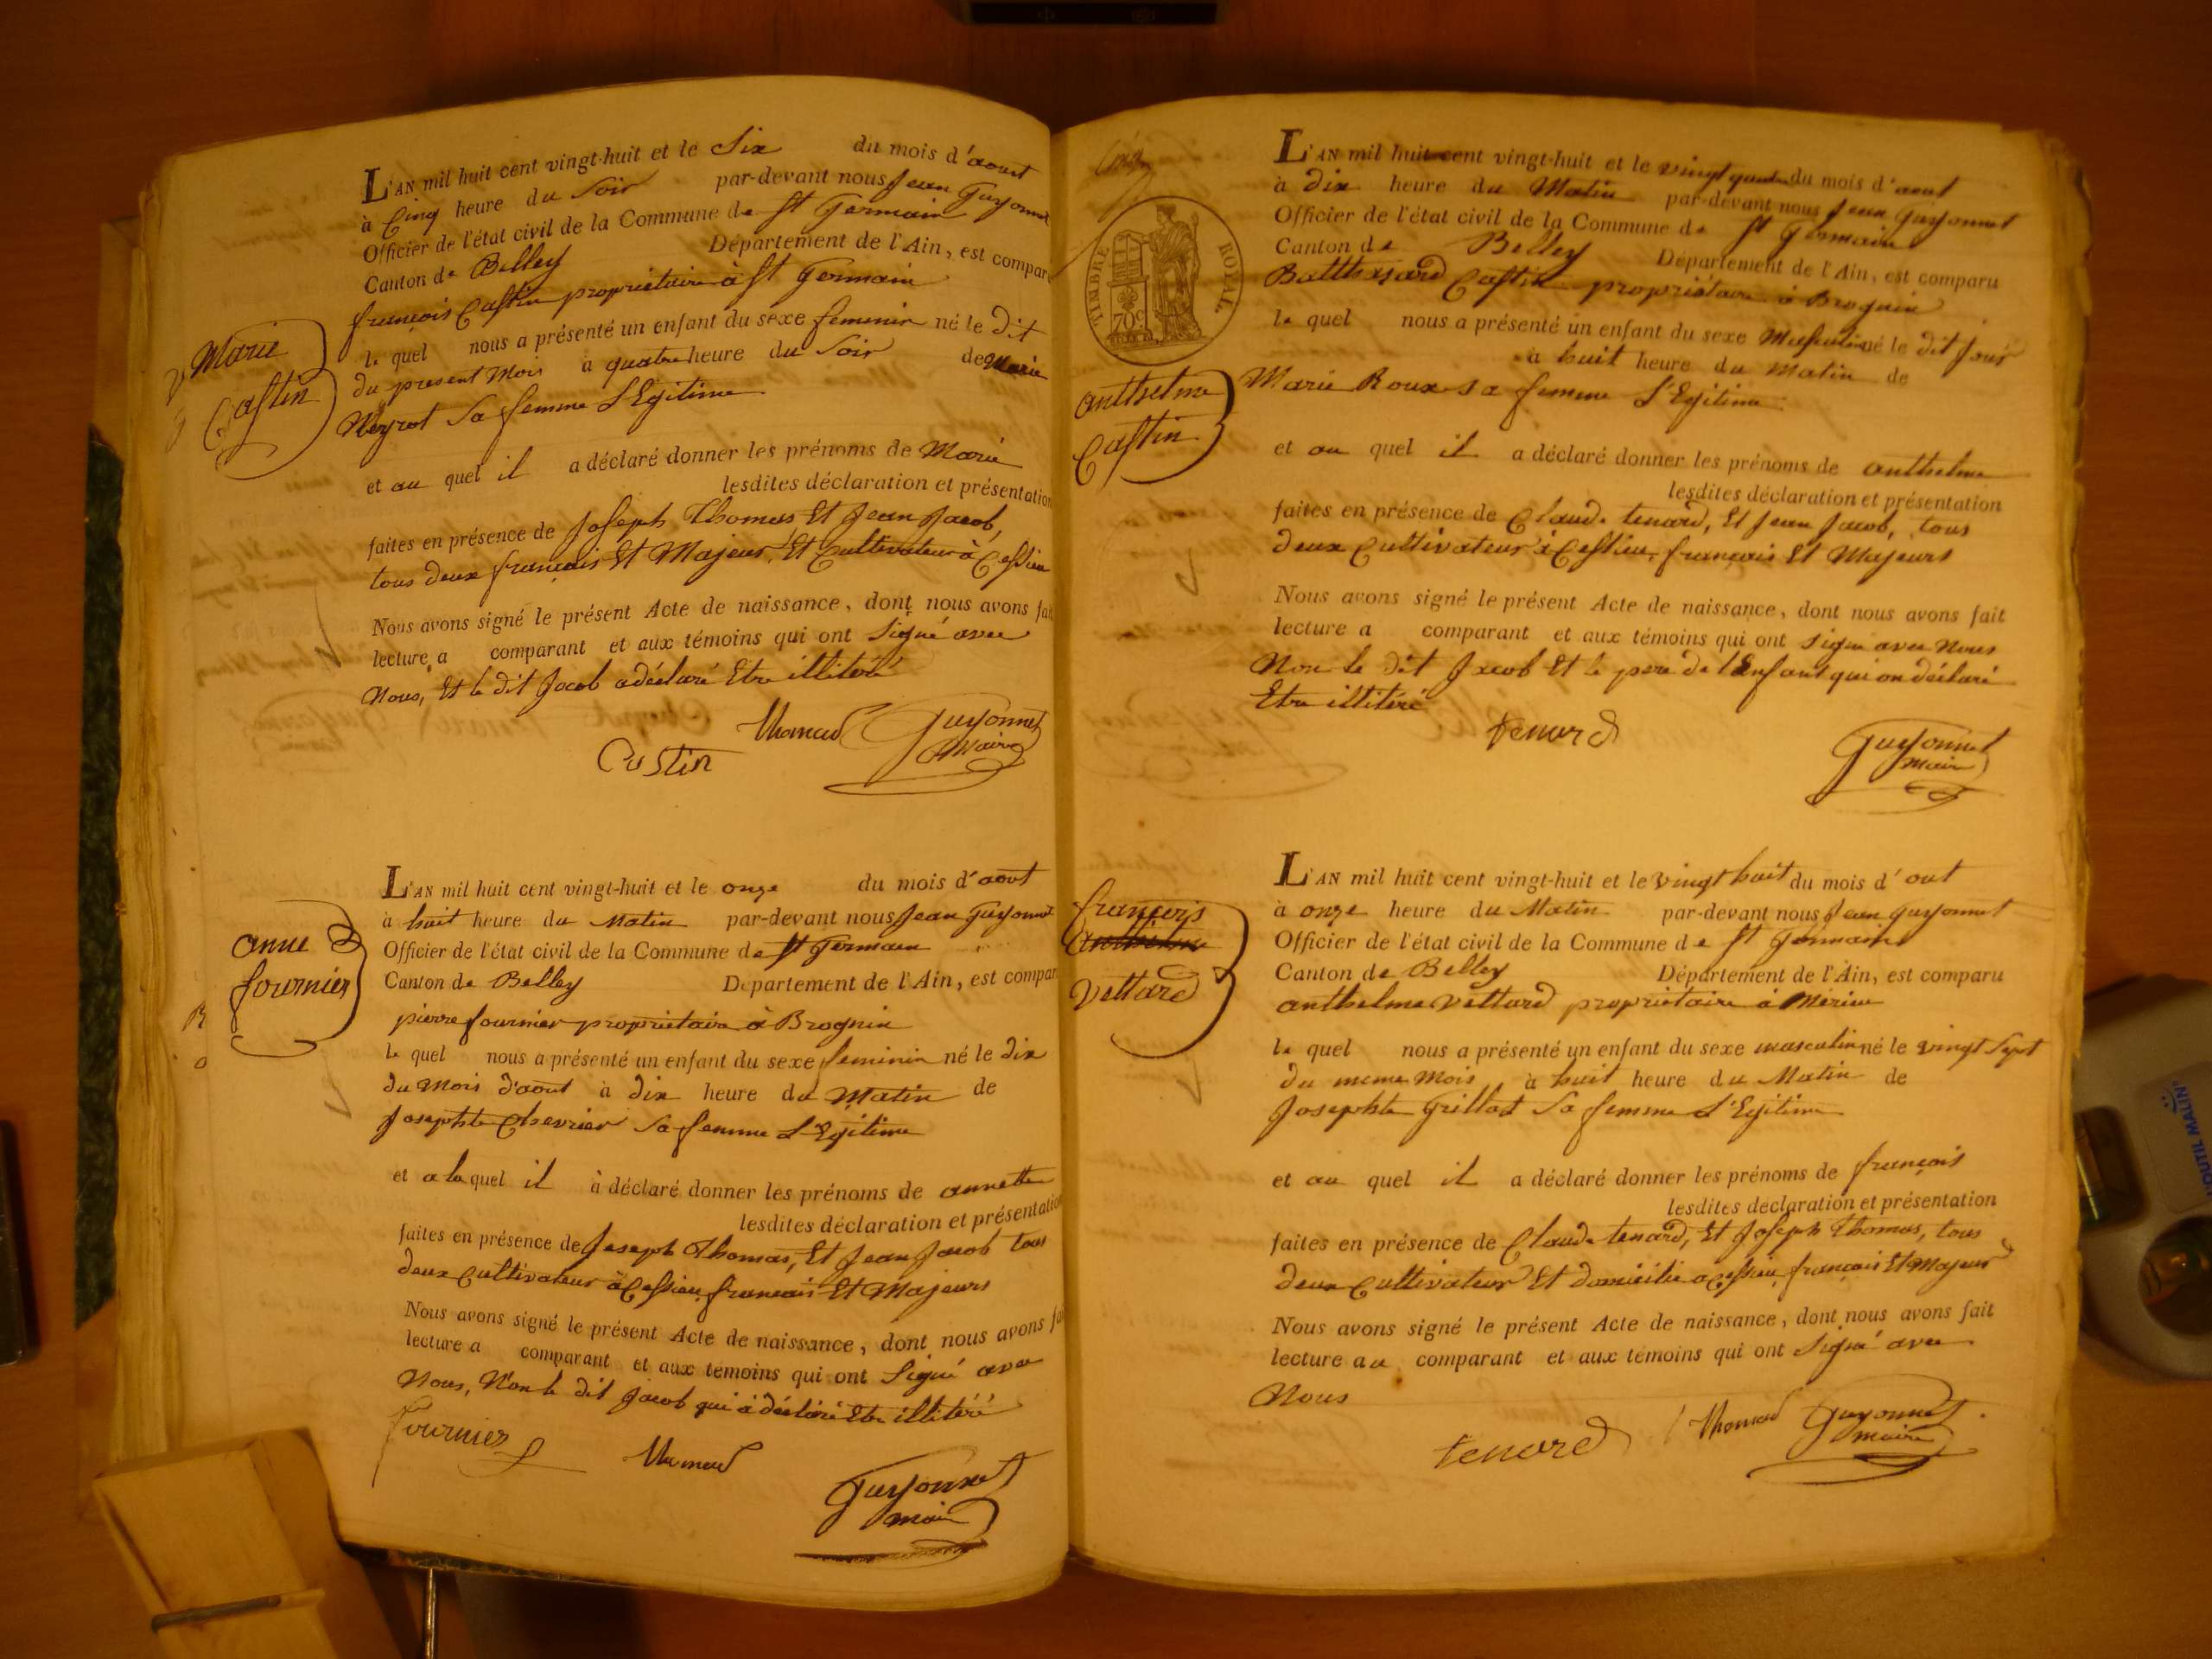 L'AN mil huit cent vingt-huit et le Six du mois d'aoust
à Cinq heure du Soir par-devant nous Jean Guyonnet
Officier de l'état civil de la Commune de St Germain
Canton de Belley Département de l'Ain, est compar
françois Castin propriétaire à St Germain
le quel nous a présenté un enfant du sexe feminin né le dit
du present Mois à quatre heure du Soir de Marie
Neyrot Sa femme L'Egitime
Marie
Castin
et au quel il a déclaré donner les prénoms de Marie
lesdites déclaration et présentation
faites en présence de Joseph Thomas Et Jean Jacob,
tous deux français Et Majeur, Et Cultivateur à Cessieu
Nous avons signé le présent Acte de naissance, dont nous avons fai
lecture a comparant et aux témoins qui ont Signé avec
Nous, Et le dit Jacob a déclaré Etre illitéré
Thomas Guyonnet
Maire
Castin
L'AN mil huit cent vingt-huit et le onze du mois d'aout
à huit heure du Matin par-devant nous Jean Guyonnet
Officier de l'état civil de la Commune de St Germain
Canton de Belley Département de l'Ain, est compar
pierre fournier propriétaire à Brognin
anne
fournier
R
o
le quel nous a présenté un enfant du sexe feminin né le dix
du Mois d'aout à dix heure du Matin de
Josephte Chevrier Sa femme L'Egitime
et a la quel il a déclaré donner les prénoms de annette
lesdites déclaration et présentation
faites en présence de Joseph Thomas, Et Jean Jacob tous
deux Cultivateur à Cessieu, français Et Majeurs
Nous avons signé le présent Acte de naissance, dont nous avons fai
lecture a comparant et aux témoins qui ont Signé avec
Nous, Non le dit Jacob qui a déclaré Etre illitéré
fournier Thomas
Guyonnet
maire
TIMBRE ROYAL
70c
L'AN mil huit cent vingt-huit et le vingt quatre du mois d'aout
à dix heure du Matin par-devant nous Jean Guyonnet
Officier de l'état civil de la Commune de St Germain
Canton de Belley Département de l'Ain, est comparu
Balthazard Castin propriétaire à Brognin
le quel nous a présenté un enfant du sexe Masculin né le dit Jour
à huit heure du Matin de
Marie Roux sa femme L'Egitime
anthelme
Castin
et au quel il a déclaré donner les prénoms de anthelme
lesdites déclaration et présentation
faites en présence de Claude tenard, Et Jean Jacob, tous
deux Cultivateur à Cessieu, français Et Majeurs
Nous avons signé le présent Acte de naissance, dont nous avons fait
lecture a comparant et aux témoins qui ont signé avec Nous
Non le dit Jacob Et le pere de l'Enfant qui on déclaré
Etre illitéré
tenard
Guyonnet
maire
L'AN mil huit cent vingt-huit et le vingt huit du mois d'out
à onze heure du Matin par-devant nous Jean Guyonnet
Officier de l'état civil de la Commune de St Germain
Canton de Belley Département de l'Ain, est comparu
anthelme Vettard propriétaire à Mérieu
françois
anthelme
Vettard
le quel nous a présenté un enfant du sexe masculin né le vingt Sept
du meme Mois à huit heure du Matin de
Josephte Grillot Sa femme L'Egitime
et au quel il a déclaré donner les prénoms de françois
lesdites déclaration et présentation
faites en présence de Claude tenard, Et Joseph Thomas, tous
deux Cultivateur Et domicilié a Cessieu, français Et Majeur
Nous avons signé le présent Acte de naissance, dont nous avons fait
lecture au comparant et aux témoins qui ont Signé avec
Nous
tenard Thomas Guyonnet
maire
OUTIL MALIN